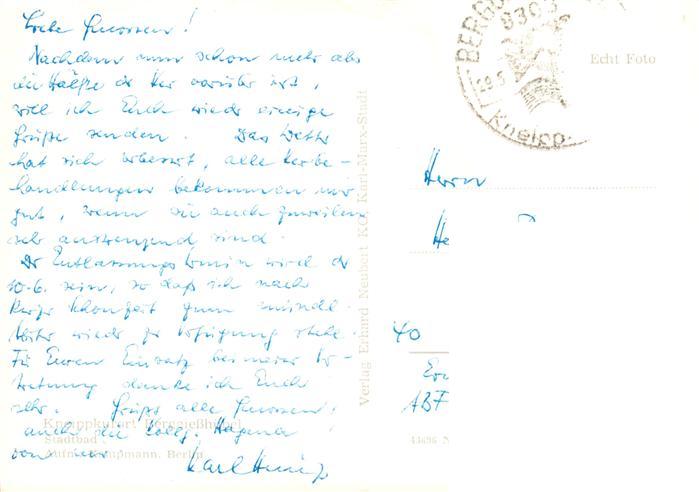 Liebe Genossen!
Nachdem nun schon mehr als
die Hälfte der Kur vorüber ist,
will ich Euch wieder einige
Grüße senden. Das Wetter
hat sich verbessert, alle Kurbe-
handlungen bekommen mir
gut, wenn sie auch zuweilen
sehr anstrengend sind.
Der Entlassungstermin wird der
10.6. sein, so daß ich nach
Schonzeit zum
wieder zur Verfügung stehe.
Für Euren Einsatz bei meiner Ver-
tretung danke ich Euch
sehr. Grüße alle Genossen,
auch die Kollg. Hagena
von mir
Karl
Kneippkurort Berggießhübel
Stadtbad
Aufn. Kaupmann, Berlin
Verlag Erhard Neubert KG, Karl-Marx-Stadt
BERGG
8303
29.5
Kneipp
Echt Foto
Herrn
He
40
ABF
43696 N